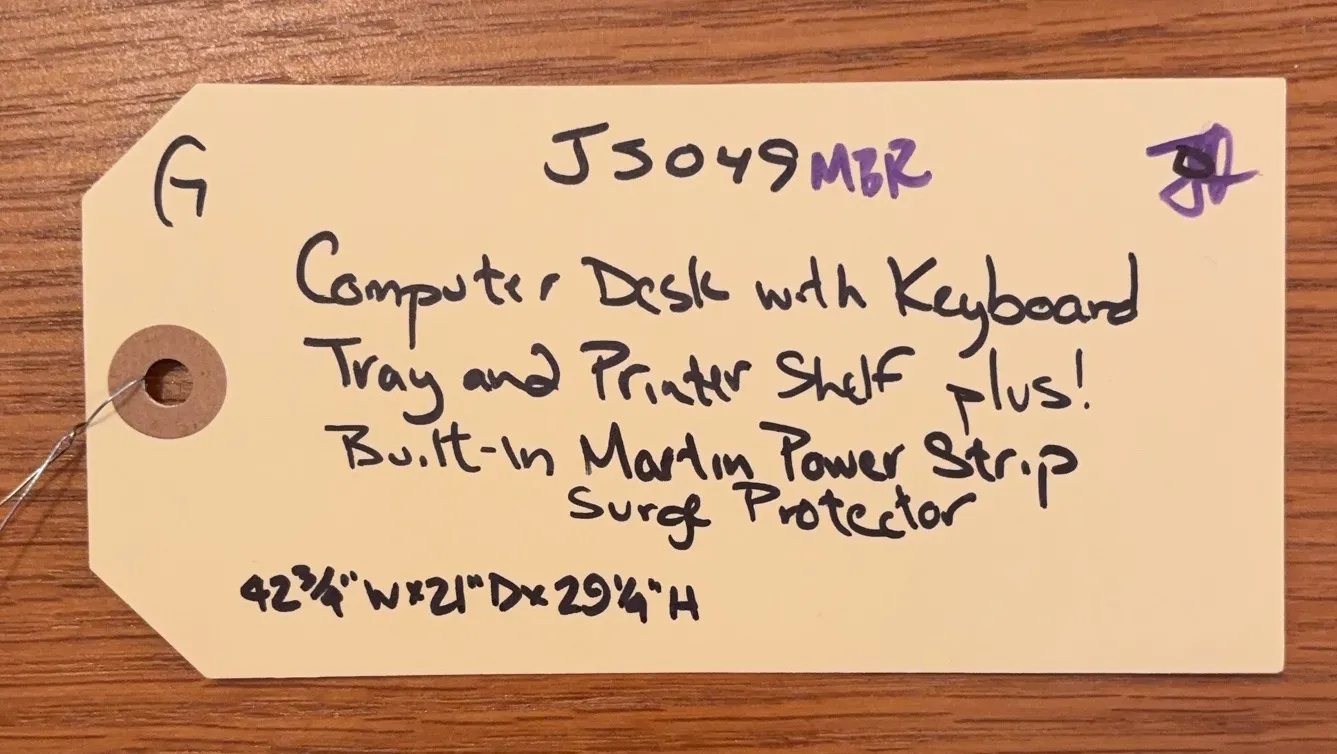 G
JS049 MBR
Computer Desk with Keyboard
Tray and Printer Shelf plus!
Built-In Martin Power Strip
Surge Protector
42 3/4" W x 21" D x 29 1/4" H